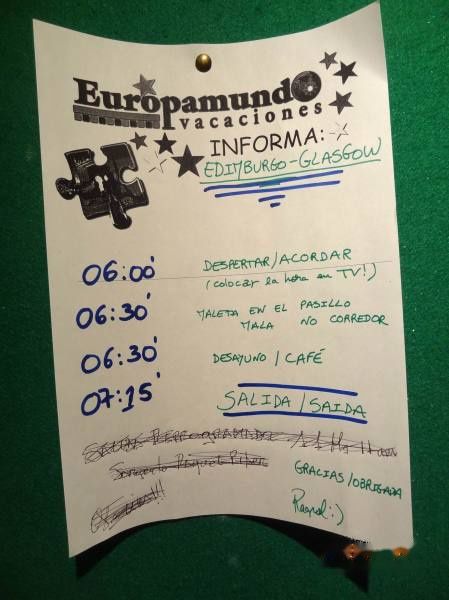 Europamundo
vacaciones
INFORMA:
EDIMBURGO-GLASGOW
06:00' DESPERTAR/ACORDAR
(colocar la hora en TV!)
06:30' MALETA EN EL PASILLO
MALA NO CORREDOR
06:30' DESAYUNO / CAFÉ
07:15' SALIDA / SAIDA
GRACIAS/OBRIGADA
Raquel :)